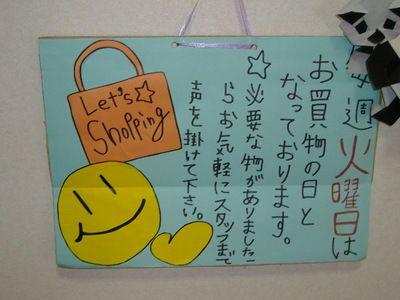 毎週火曜日は
お買物の日と
なっております。
☆必要な物がありました
らお気軽にスタッフまで
声を掛けて下さい。
Let's☆
Shopping